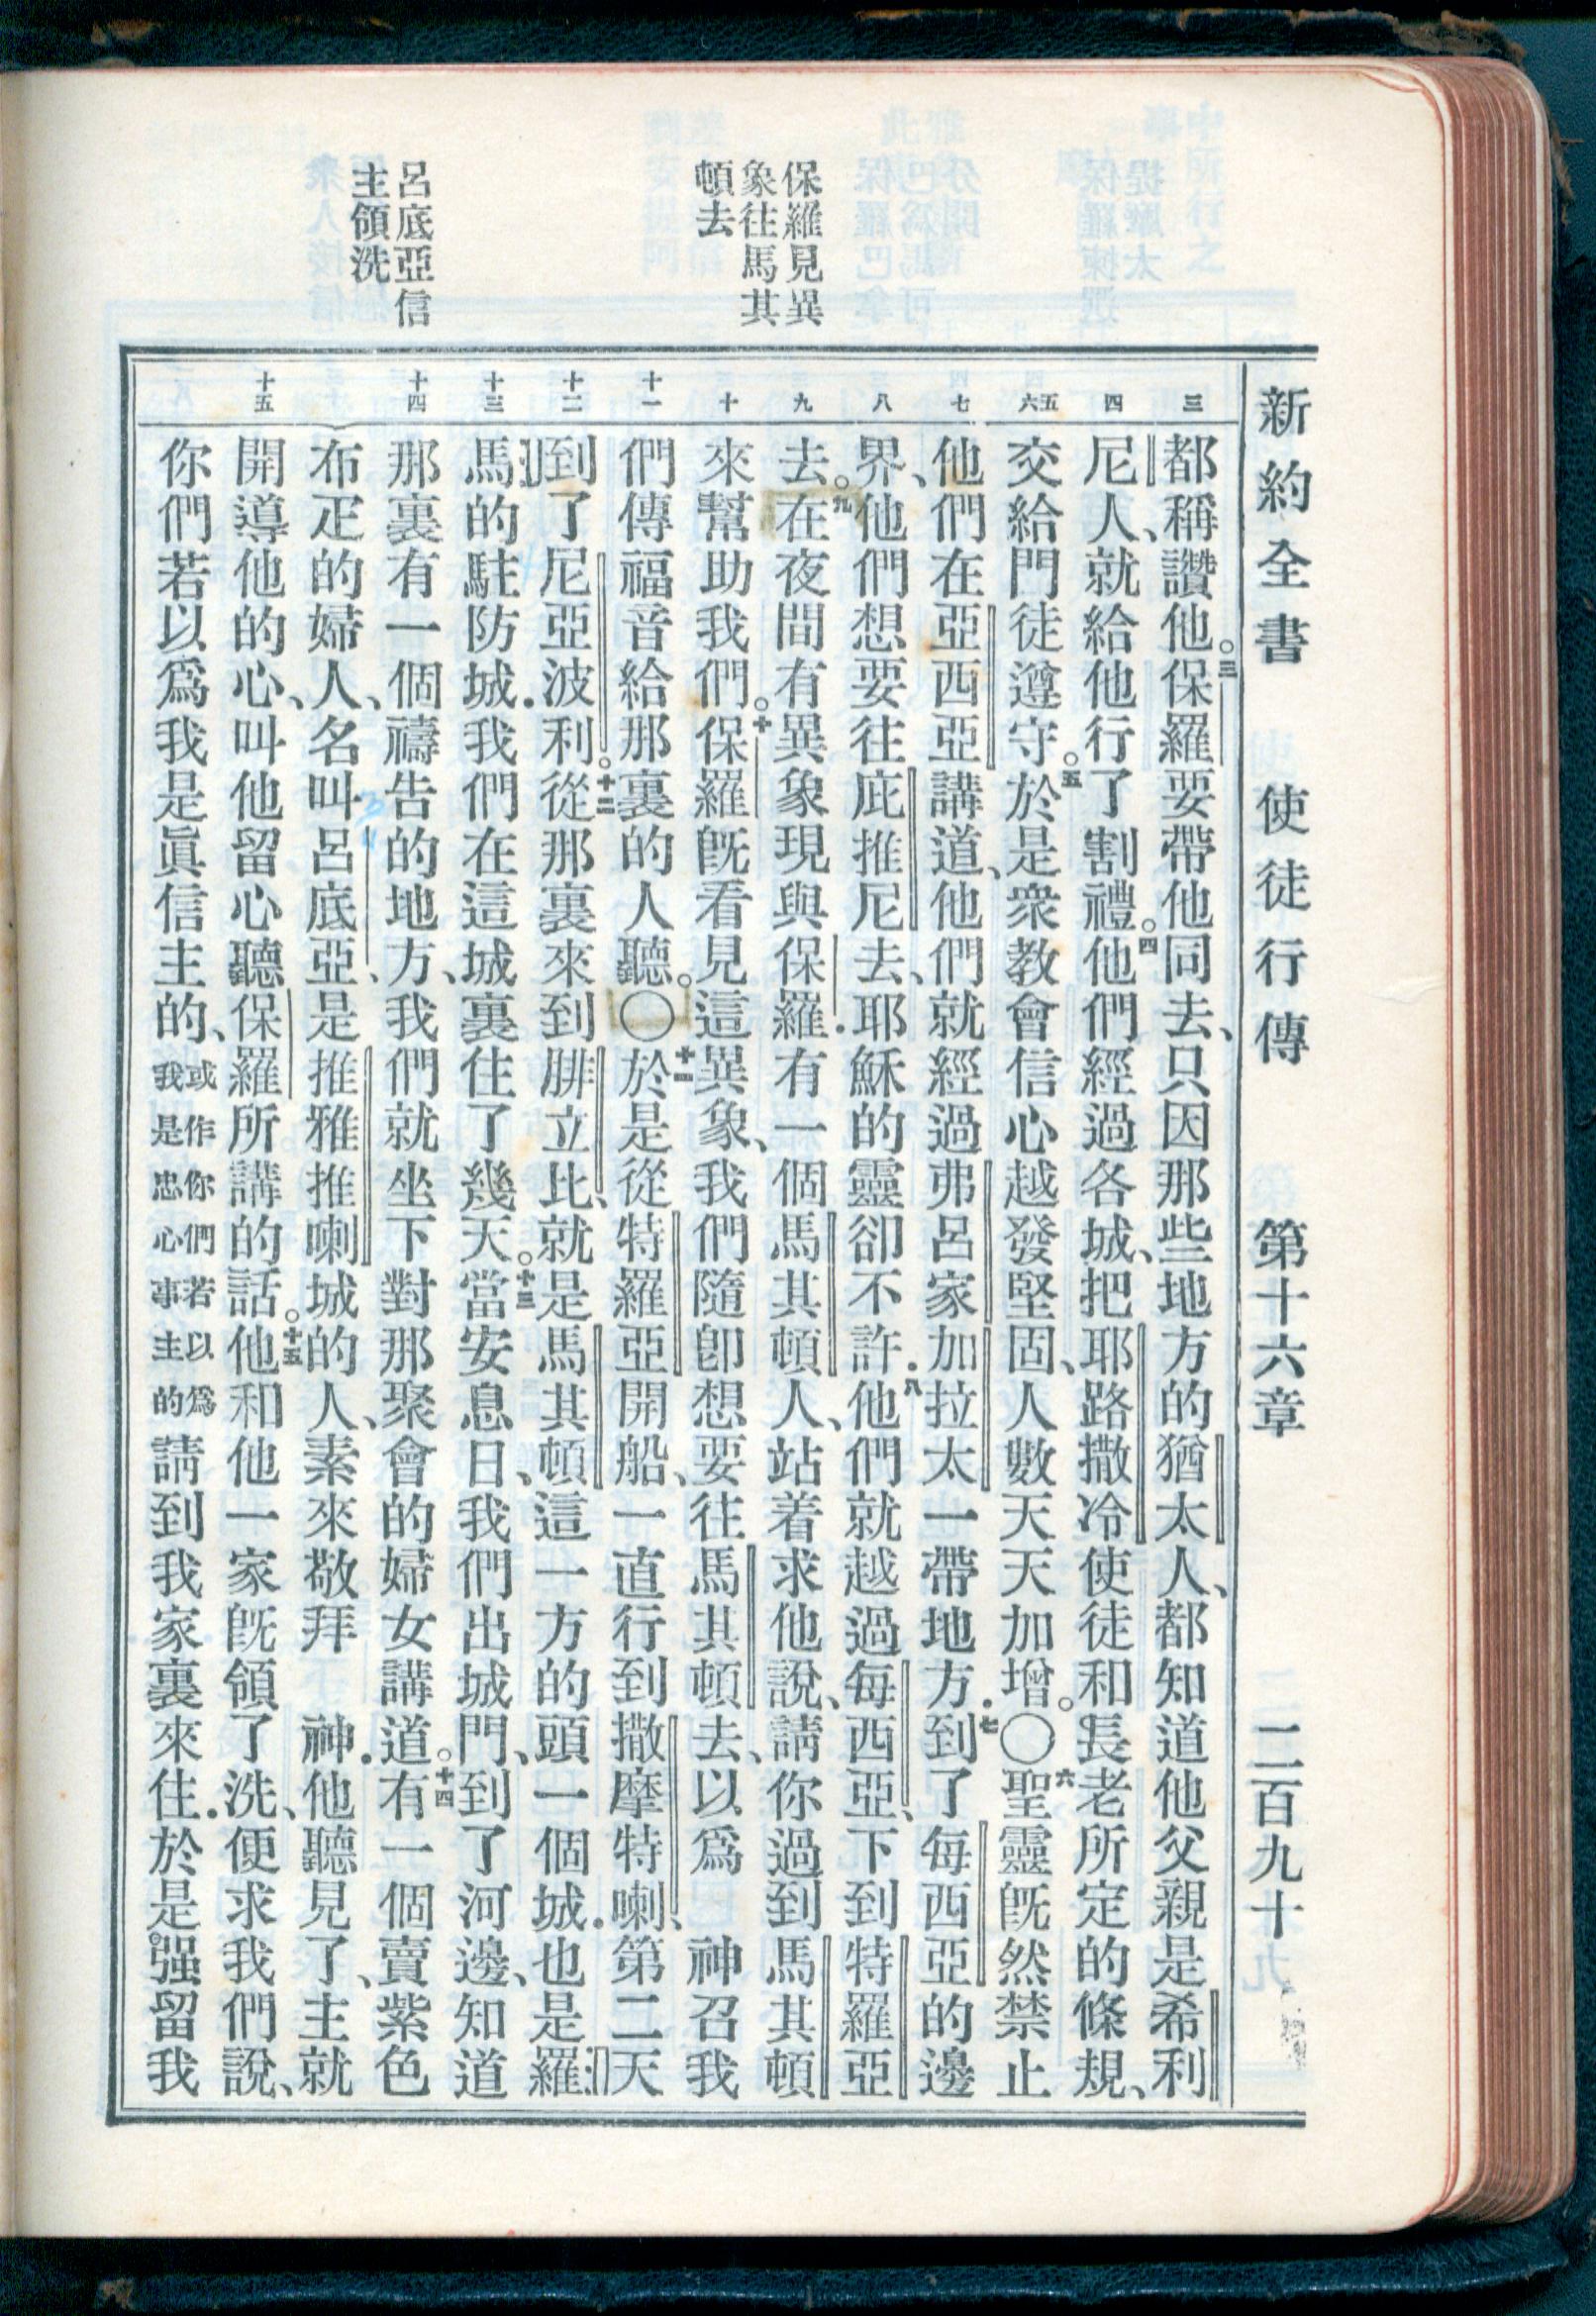 新約全書　使徒行傳　第十六章　二百九十
保羅見異
象往馬其
頓去
呂底亞信
主領洗
三
四
五
六
七
八
九
十
十一
十二
十三
十四
十五
都稱讚他。三保羅要帶他同去、只因那些地方的猶太人、都知道他父親是希利
尼人、就給他行了割禮。四他們經過各城、把耶路撒冷使徒和長老所定的條規、
交給門徒遵守。五於是衆教會信心越發堅固、人數天天加增。〇六聖靈旣然禁止
他們在亞西亞講道、他們就經過弗呂家加拉太一帶地方.七到了每西亞的邊
界、他們想要往庇推尼去、耶穌的靈卻不許.八他們就越過每西亞、下到特羅亞
去。九在夜間有異象現與保羅.有一個馬其頓人、站着求他說、請你過到馬其頓
來幫助我們。十保羅旣看見這異象、我們隨卽想要往馬其頓去、以爲　神召我
們傳福音給那裏的人聽。〇十一於是從特羅亞開船、一直行到撒摩特喇、第二天
到了尼亞波利。十二從那裏來到腓立比、就是馬其頓這一方的頭一個城.也是羅
馬的駐防城.我們在這城裏住了幾天。十三當安息日、我們出城門、到了河邊、知道
那裏有一個禱告的地方、我們就坐下對那聚會的婦女講道。十四有一個賣紫色
布疋的婦人、名叫呂底亞、是推雅推喇城的人、素來敬拜　神.他聽見了、主就
開導他的心、叫他留心聽保羅所講的話。十五他和他一家旣領了洗、便求我們說、
你們若以爲我是眞信主的、或作你們若以爲我是忠心事主的請到我家裏來住.於是强留我